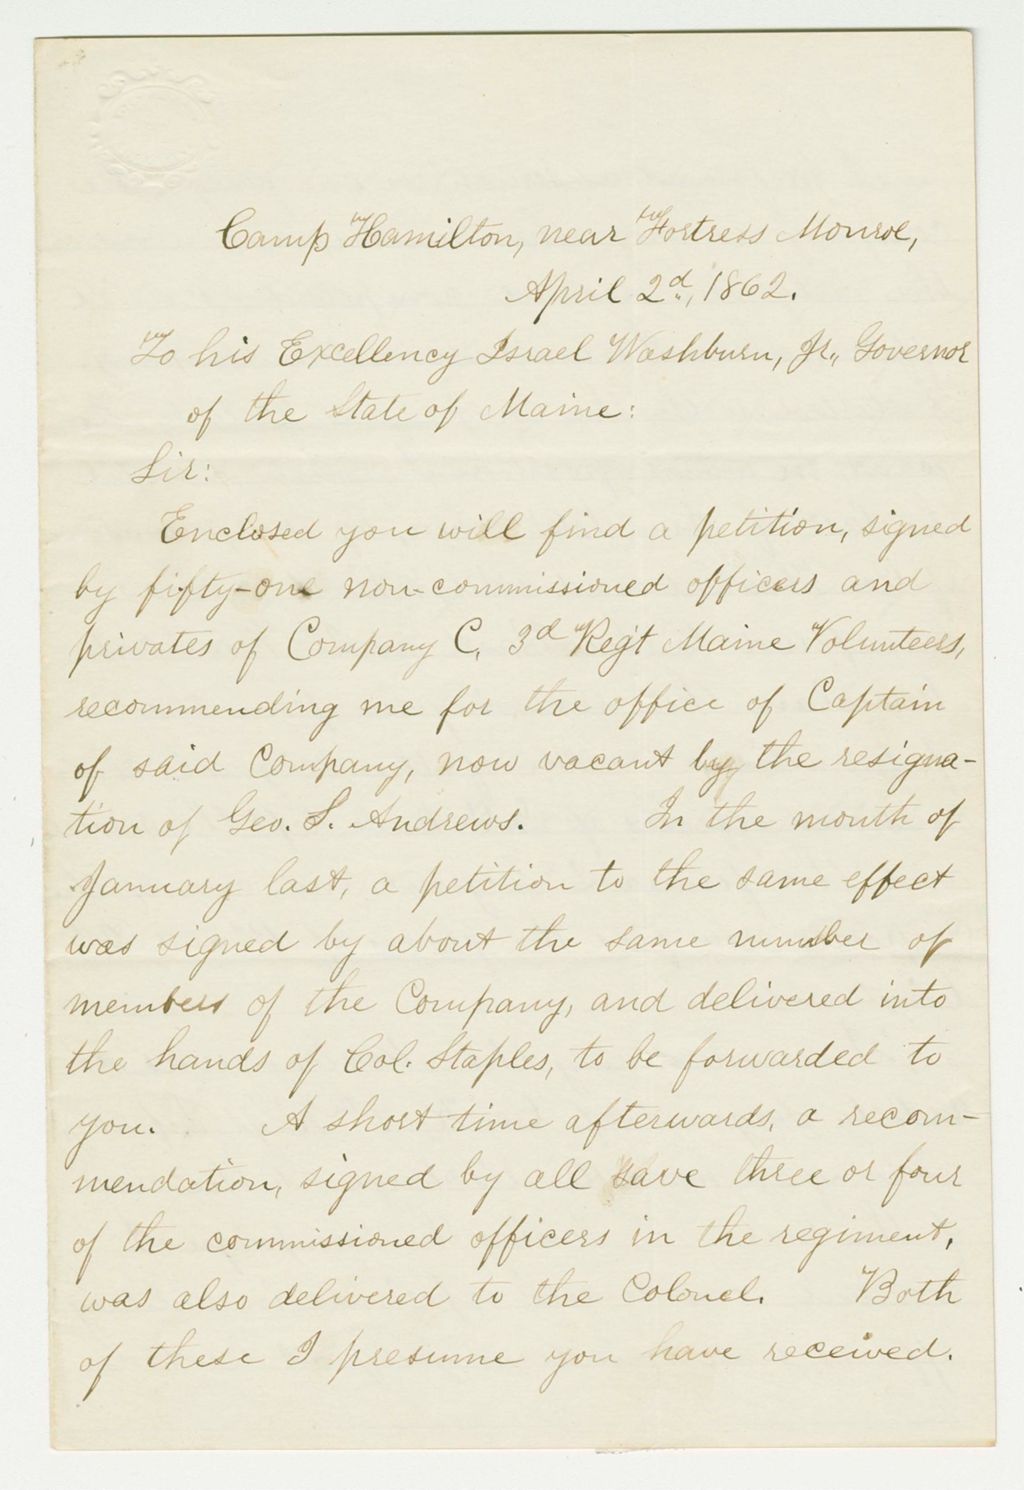 Camp Hamilton, near Fortress Monroe,
April 2d., 1862.
To his Excellency Israel Washburn, Jr., Governor
of the State of Maine:
Sir:
Enclosed you will find a petition, signed
by fifty-one non-commissioned officers and
privates of Company C, 3d Reg't Maine Volunteers,
recommending me for the office of Captain
of said Company, now vacant by the resigna-
tion of Geo. S. Andrews. In the month of
January last, a petition to the same effect
was signed by about the same number of
members of the Company, and delivered into
the hands of Col. Staples, to be forwarded to
you. A short time afterwards, a recom-
mendation, signed by all save three or four
of the commissioned officers in the regiment,
was also delivered to the Colonel. Both
of these I presume you have received.